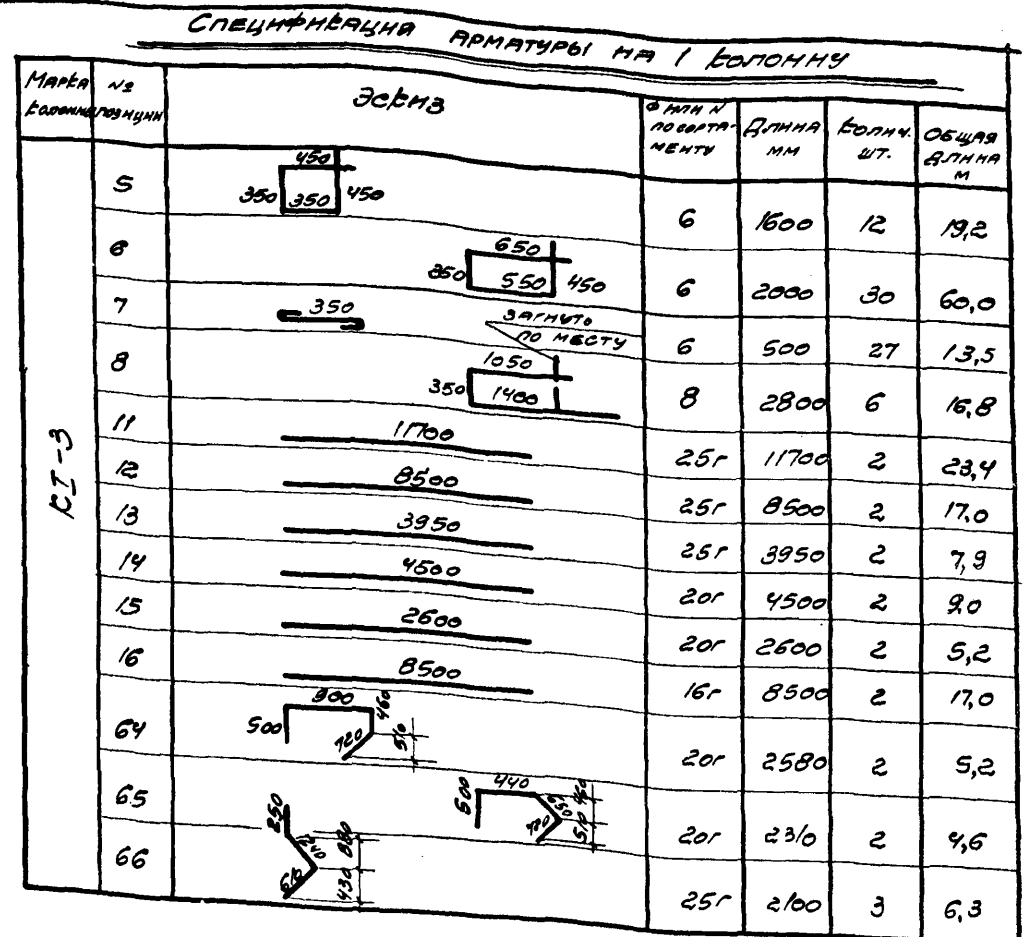 Спецификация арматуры на 1 колонну
Марка колонны № позиции Эскиз Ф или N по сортаменту Длина мм Колич. шт. Общая длина м
КI-3
5 450 350 350 450 6 1600 12 19,2
6 650 350 550 450 6 2000 30 60,0
7 350 6 500 27 13,5
загнуть по месту
8 1050 350 1400 8 2800 6 16,8
11 11700 25г 11700 2 23,4
12 8500 25г 8500 2 17,0
13 3950 25г 3950 2 7,9
14 4500 20г 4500 2 9.0
15 2600 20г 2600 2 5,2
16 8500 16г 8500 2 17,0
64 900 500 460 720 510 20г 2580 2 5,2
65 500 440 650 460 720 510 20г 2310 2 4,6
66 250 1240 880 610 430 25г 2100 3 6,3